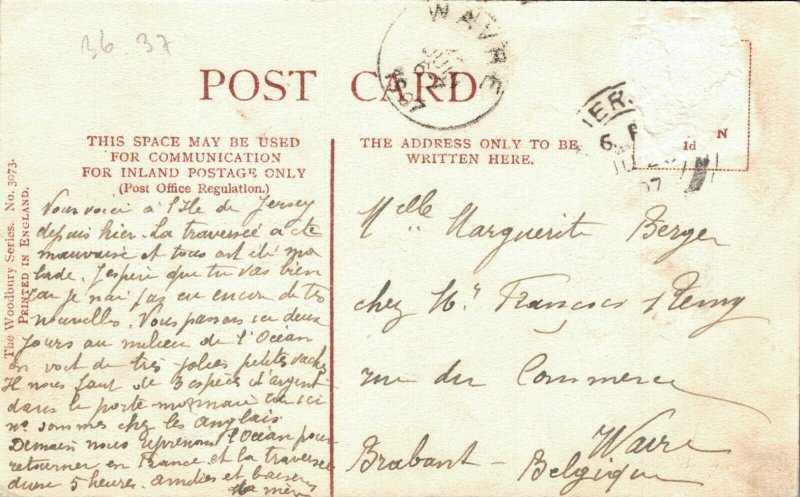 36 37
POST CARD
WAVRE
1907
JER
1d
N
THIS SPACE MAY BE USED
FOR COMMUNICATION
FOR INLAND POSTAGE ONLY
(Post Office Regulation.)
THE ADDRESS ONLY TO BE
WRITTEN HERE.
The Woodbury Series. No. 3073.
PRINTED IN ENGLAND.
Nous voici à l'Ile de Jersey
depuis hier. La traversée a été
mauvaise et tous ont été ma
lade. J'espère que tu vas bien
Car je n'ai pas eu encore de tes
nouvelles. Nous passons ici deux
jours au milieu de l'Océan
on voit de très jolies petites vaches
Il nous faut de 3 espèces d'argent
dans le porte monnaie car ici
ns sommes chez les Anglais
Demain nous reprenons l'Océan pour
retourner en France et la traversée
dure 5 heures. Amitiés et baisers
Ma mère
Melle Marguerite Berger
chez Mr François Remy
rue du Commerce
Wavre
Brabant - Belgique